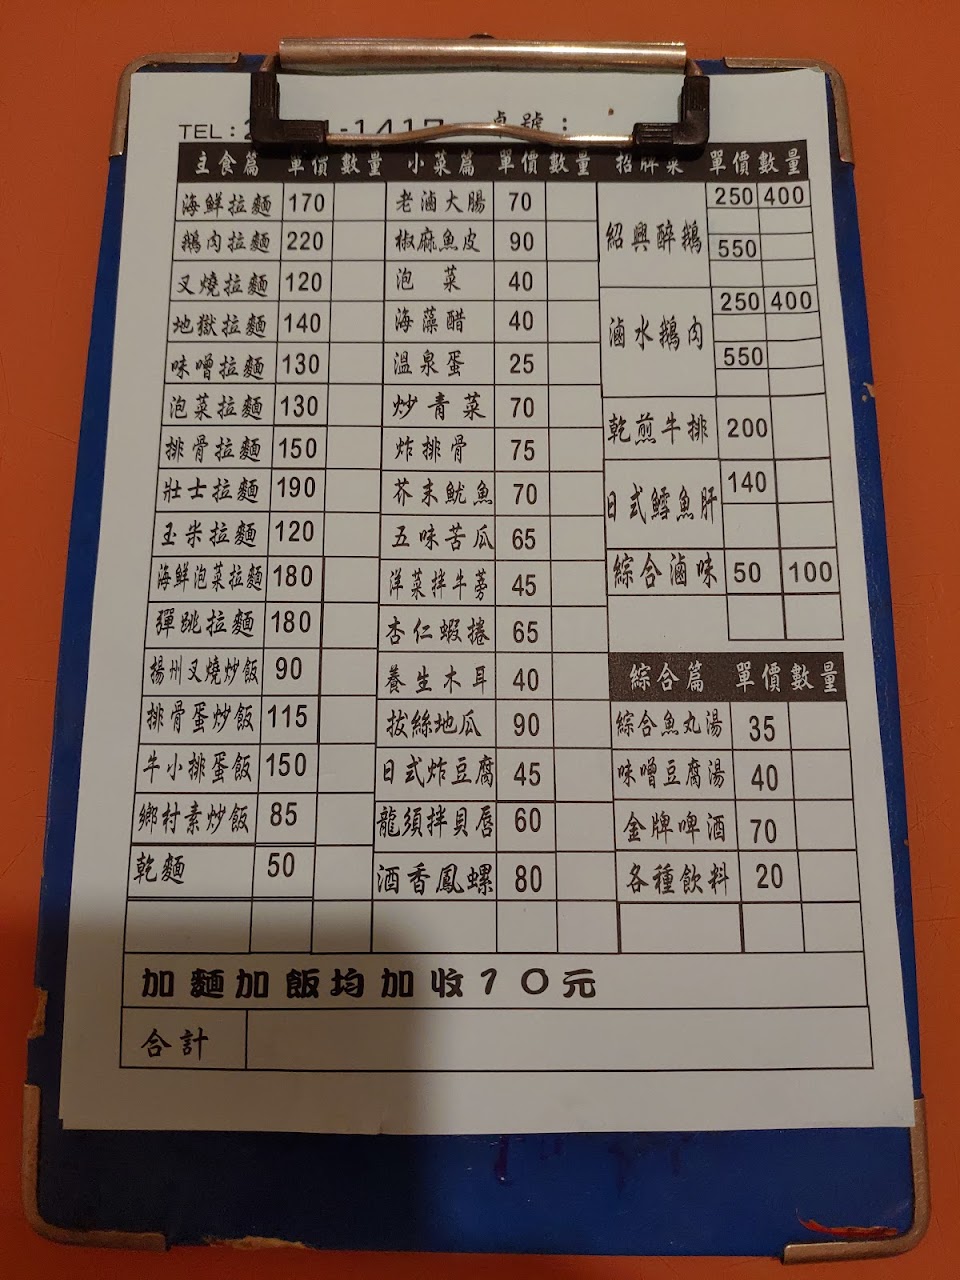 TEL: 1-1417 桌號：
主食篇 單價 數量 小菜篇 單價 數量 招牌菜 單價 數量
海鮮拉麵 170 老滷大腸 70 紹興醉鵝 250 400
鵝肉拉麵 220 椒麻魚皮 90 550
叉燒拉麵 120 泡菜 40 滷水鵝肉 250 400
地獄拉麵 140 海藻醋 40 550
味噌拉麵 130 溫泉蛋 25
泡菜拉麵 130 炒青菜 70 乾煎牛排 200
排骨拉麵 150 炸排骨 75
壯士拉麵 190 芥末魷魚 70 日式鱈魚肝 140
玉米拉麵 120 五味苦瓜 65
海鮮泡菜拉麵 180 洋菜拌牛蒡 45 綜合滷味 50 100
彈跳拉麵 180 杏仁蝦捲 65
揚州叉燒炒飯 90 養生木耳 40 綜合篇 單價 數量
排骨蛋炒飯 115 拔絲地瓜 90 綜合魚丸湯 35
牛小排蛋飯 150 日式炸豆腐 45 味噌豆腐湯 40
鄉村素炒飯 85 龍須拌貝唇 60 金牌啤酒 70
乾麵 50 酒香鳳螺 80 各種飲料 20
加麵加飯均加收10元
合計